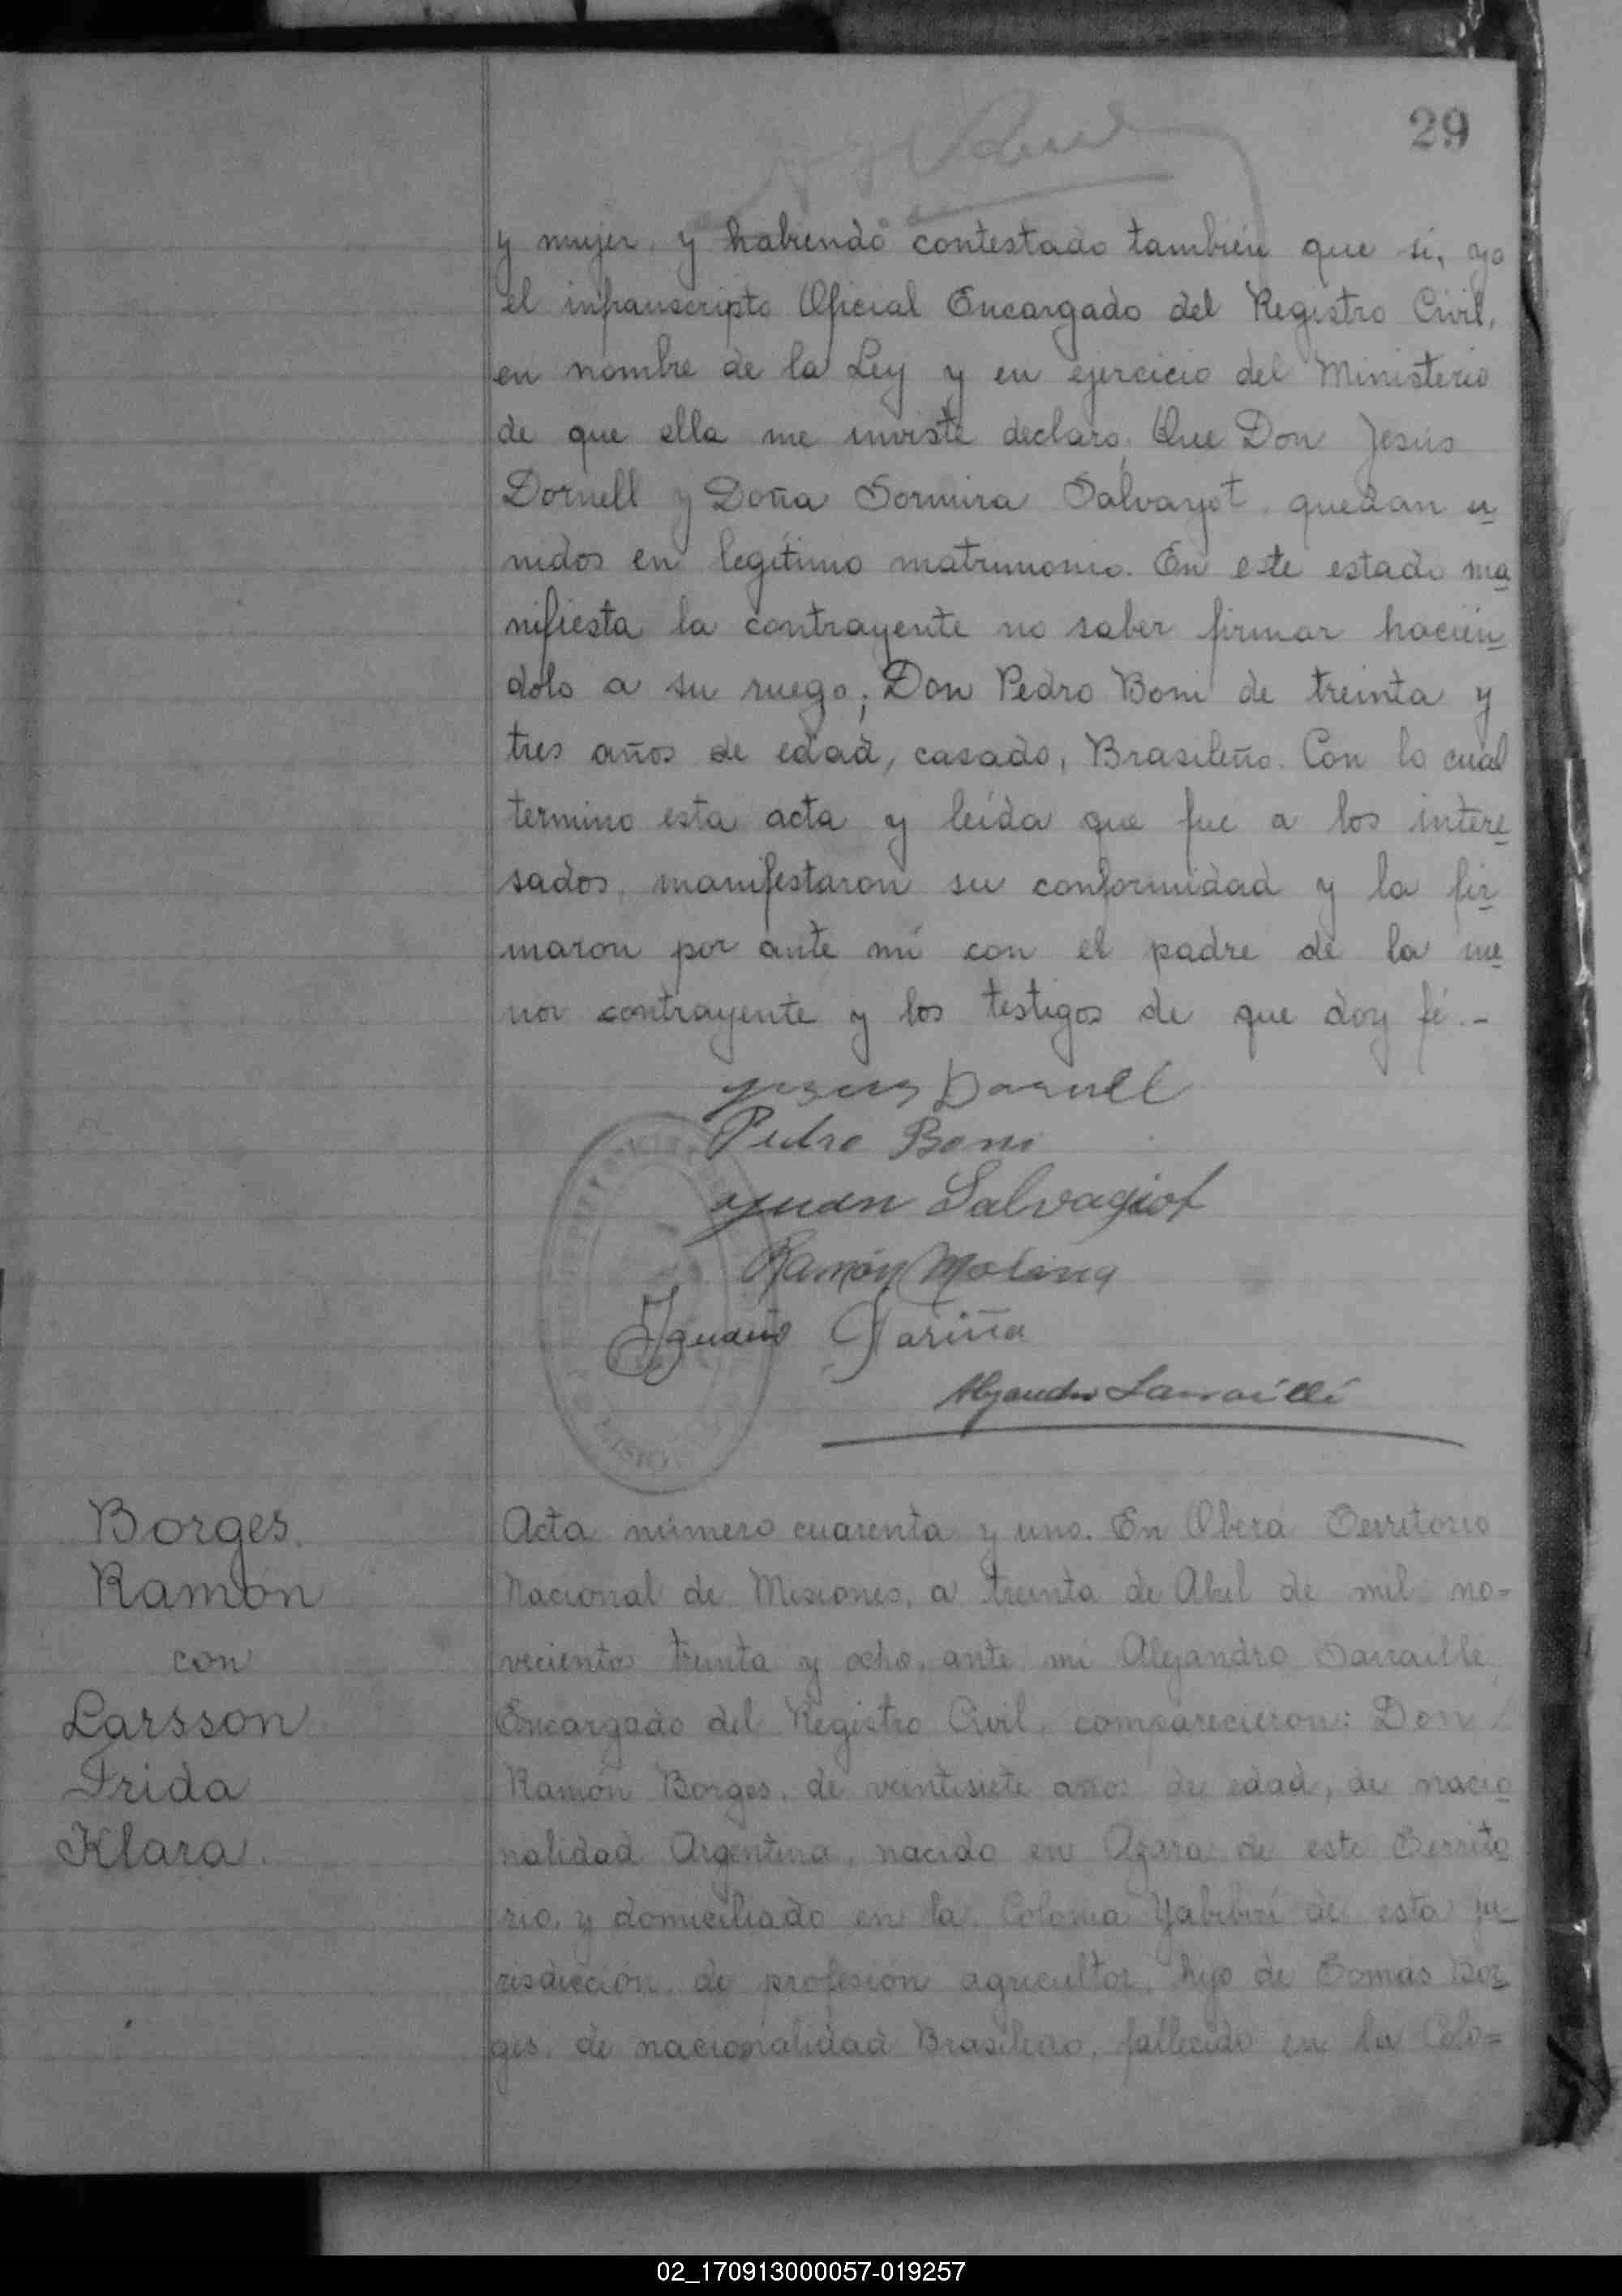 29
y mujer, y habiendo contestado también que sí, yo
el infranscripto Oficial Encargado del Registro Civil,
en nombre de la Ley y en ejercicio del Ministerio
de que ella me inviste declaro; Que Don Jesús
Dornell y Doña Tormira Salvayot quedan u
nidos en legítimo matrimonio. En este estado ma
nifiesta la contrayente no saber firmar hacién
dolo a su ruego; Don Pedro Boni de treinta y
tres años de edad, casado, Brasileño. Con lo cual
termino esta acta y leída que fue a los intere
sados, manifestaron su conformidad y la fir
maron por ante mí con el padre de la me
nor contrayente y los testigos de que doy fé.-
Jesus Dornell
Pedro Boni
Juan Salvagiot
Ramón Molina
Fariña
Borges
Ramón
con
Larsson
Frida
Klara.
Acta número cuarenta y uno. En Oberá Territorio
Nacional de Misiones, a treinta de Abril de mil no=
vecientos treinta y ocho, ante mí Alejandro Sarraille,
Encargado del Registro Civil, comparecieron: Don
Ramón Borges, de veintisiete años de edad, de nacio
nalidad Argentina, nacido en Azara de este Territo
rio, y domiciliado en la Colonia Yabebirí de esta ju
risdicción, de profesión agricultor, hijo de Tomás Bor
ges, de nacionalidad Brasilero, fallecido en la Colo=
02_170913000057-019257